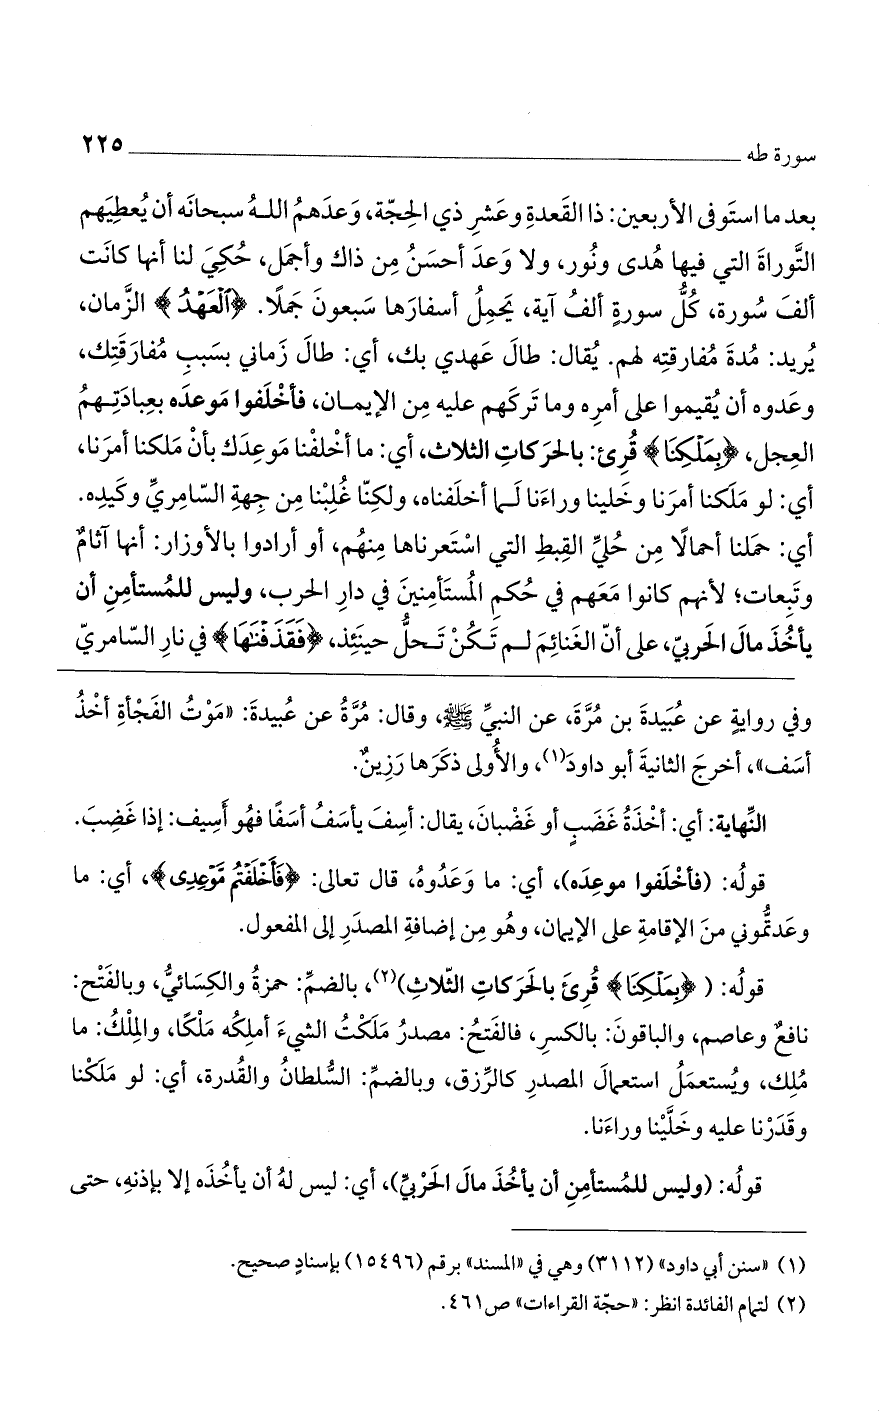 سورة طه ــــــــــ ٢٢٥
بعد ما استَوفى الأربعين: ذا القَعدةِ وعَشرِ ذي الحِجّة، وَعدَهمُ اللهُ سبحانَه أن يُعطِيَهم
التَّوراةَ التي فيها هُدى ونُور، ولا وَعدَ أحسَنُ مِن ذاك وأجمَل، حُكِيَ لنا أنها كانَت
ألفَ سُورة، كُلُّ سورةٍ ألفُ آية، يَحمِلُ أسفارَها سَبعونَ جَملًا. ﴿ٱلْعَهْدُ﴾ الزَّمان،
يُريد: مُدةَ مُفارقتِه لهم. يُقال: طالَ عَهدي بك، أي: طالَ زَماني بسَببِ مفُارَقَتِك،
وعَدوه أن يُقيموا على أمرِه وما تَركَهم عليه مِن الإيمان، فأخْلَفوا مَوعدَه بعِبادَتِهمُ
العِجل، ﴿بِمَلْكِنَا﴾ قُرِئ: بالحرَكاتِ الثلاث، أي: ما أخْلفْنا مَوعِدَك بأنْ مَلكنا أمرَنا،
أي: لو مَلَكنا أمرَنا وخَلينا وراءَنا لَما أخلَفناه، ولكِنّا غُلِبْنا مِن جِهةِ السّامريِّ وكَيدِه.
أي: حمَلنا أحمالًا مِن حُليِّ القِبطِ التي اسْتَعرناها مِنهُم، أو أرادوا بالأوزار: أنها آثامٌ
وتَبِعات؛ لأنهم كانوا مَعَهم في حُكمِ المُستَأمِنينَ في دارِ الحرب، وليس للمُستأمِنِ أن
يأخُذَ مالَ الحَربيّ، على أنّ الغَنائِمَ لم تَكُنْ تَحلُّ حينَئِذ، ﴿فَقَذَفْنَٰهَا﴾ في نارِ السّامريّ
وفي روايةٍ عن عُبَيدةَ بن مُرَّةَ، عن النبيِّ ﷺ، وقال: مُرَّةُ عن عُبيدةَ: «مَوْتُ الفَجْأةِ أخْذُ
أسَف»، أخرجَ الثانيةَ أبو داودَ(١)، والأُولى ذكَرَها رَزِينٌ.
النِّهاية: أي: أخْذَةُ غَضَبٍ أو غَضْبانَ، يقال: أسِفَ يأسَفُ أسَفًا فهُو أَسِيف: إذا غَضِبَ.
قولُه: (فأخْلَفوا موعِدَه)، أي: ما وَعَدُوهُ، قال تعالى: ﴿فَأَخْلَفْتُم مَّوْعِدِى﴾، أي: ما
وعَدتُّموني منَ الإقامةِ على الإيمان، وهُو مِن إضافةِ المصدَرِ إلى المفعول.
قولُه: ( ﴿بِمَلْكِنَا﴾ قُرِئَ بالحَرَكاتِ الثّلاثِ)(٢)، بالضمِّ: حمزةُ والكِسَائيُّ، وبالفَتْح:
نافعٌ وعاصم، والباقونَ: بالكسرِ، فالفَتحُ: مصدرُ مَلَكْتُ الشيءَ أملِكُه مَلْكًا، والمِلْكُ: ما
مُلِك، ويُستعمَلُ استعمالَ المصدرِ كالرِّزق، وبالضمِّ: السُّلطانُ والقُدرة، أي: لو مَلَكْنا
وقَدَرْنا عليه وخَلَّيْنا وراءَنا.
قولُه: (وليس للمُستأمِنِ أن يأخُذَ مالَ الحَرْبيِّ)، أي: ليس لهُ أن يأخُذَه إلا بإذنهِ، حتى
(١) «سنن أبي داود» (٣١١٢) وهي في «المسند» برقم (١٥٤٩٦) بإسنادٍ صحيح.
(٢) لتمام الفائدة انظر: «حجّة القراءات» ص٤٦١.